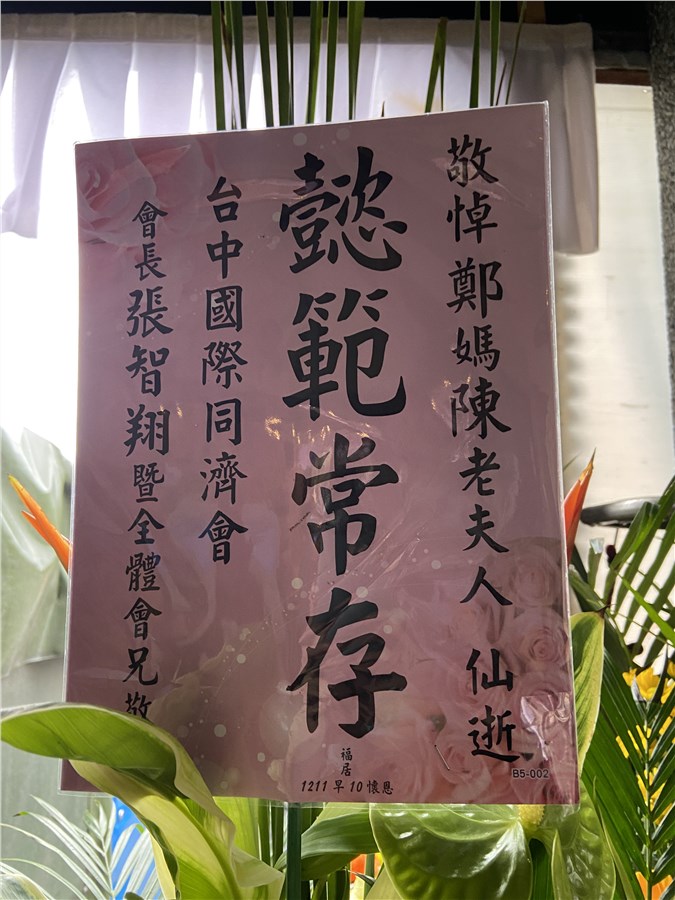 敬悼鄭媽陳老夫人 仙逝
懿範常存
台中國際同濟會
會長張智翔暨全體會兄敬
福居
1211 早 10 懷恩
B5-002